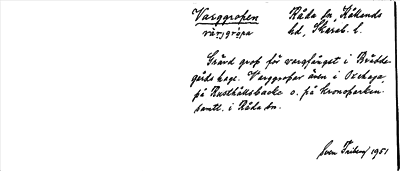 Varggropen Råda sn, Kållands
va̱rjgrópa hd, Skarab. l.
Grävd grop för vargfånget i Brädde-
gårds hage. Varggropar även i Oxhaga,
på Rusthållsbacke o. på kronoparken
samtl. i Råda sn.
Sven Friberg 1951